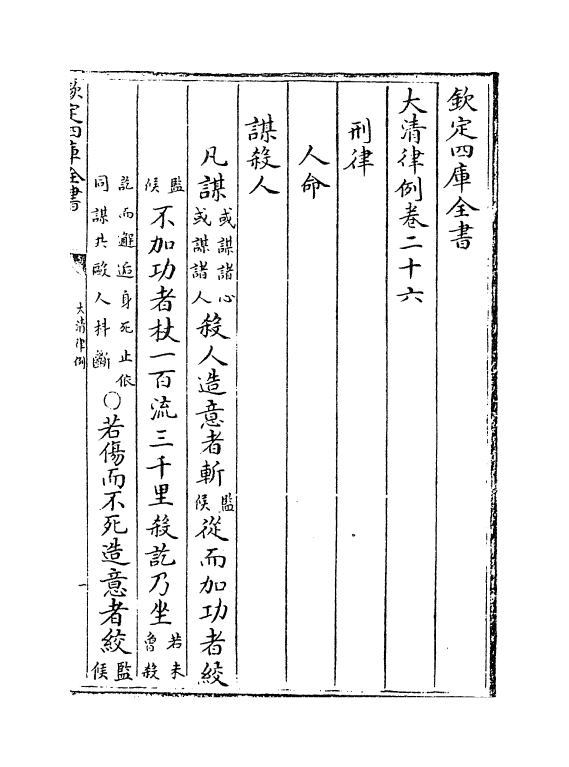 欽定四庫全書
大清律例卷二十六
刑律
人命
謀殺人
凡謀或謀諸心或謀諸人殺人造意者斬監候從而加功者絞
監候不加功者杖一百流三千里殺訖乃坐若未曾殺
訖而邂逅身死止依同謀共毆人科斷○若傷而不死造意者絞監候
欽定四庫全書
大清律例
一